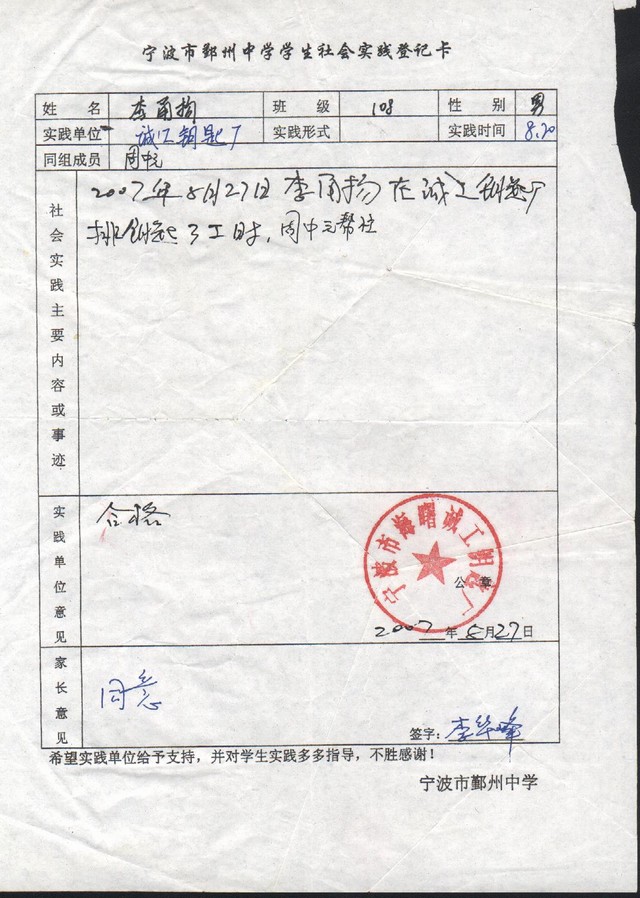 宁波市鄞州中学学生社会实践登记卡
姓 名 李甬扬 班 级 108 性 别 男
实践单位 诚工钥匙厂 实践形式 实践时间 8.20
同组成员 周中元
社会实践主要内容或事迹
2007年8月27日李甬扬在诚工钥匙厂
排钥匙3工时,周中元帮忙
实践单位意见
合格
宁波市海曙诚工钥匙厂
公 章
2007年8月27日
家长意见
同意
签字:李华峰
希望实践单位给予支持,并对学生实践多多指导,不胜感谢!
宁波市鄞州中学